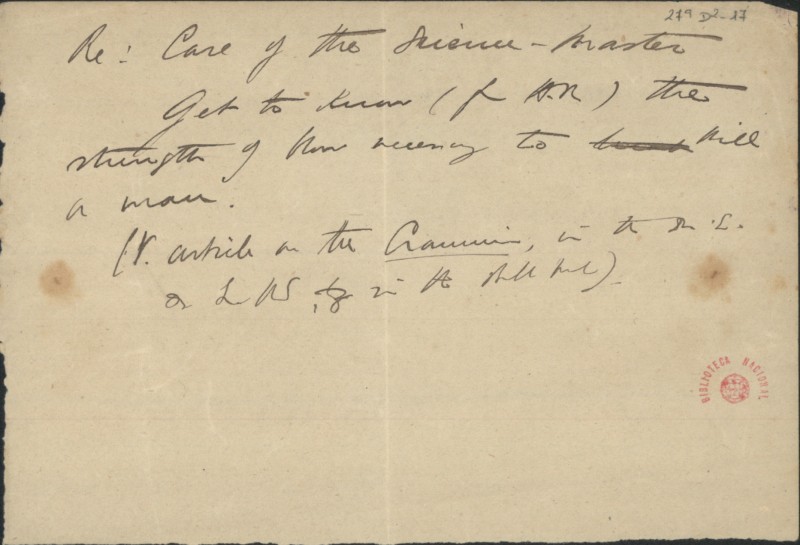 27⁹ D²-17
Re: Case of the Science-Master
Get to know (for H.R) the
strength of blow necessary to kill
a man.
(V. article on the Cranium, in the
in the skull
BIBLIOTECA NACIONAL